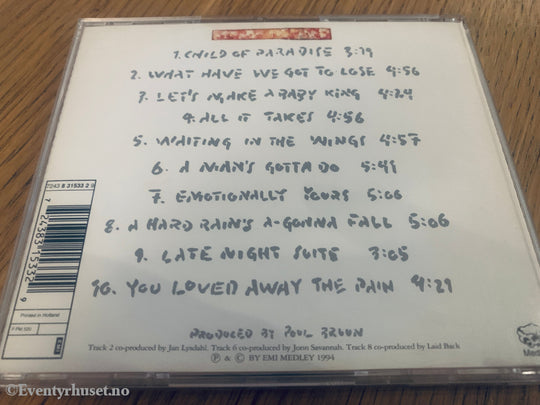 1. CHILD OF PARADISE 3:19
2. WHAT HAVE WE GOT TO LOSE 4:56
3. LET'S MAKE A BABY KING 4:24
4. ALL IT TAKES 4:56
5. WAITING IN THE WINGS 4:57
6. A MAN'S GOTTA DO 5:41
7. EMOTIONALLY YOURS 5:06
8. A HARD RAIN'S A-GONNA FALL 5:06
9. LATE NIGHT SUITE 3:05
10. YOU LOVED AWAY THE PAIN 4:29
PRODUCED BY POUL BRUUN
Track 2 co-produced by Jan Lysdahl. Track 6 co-produced by Jonn Savannah. Track 8 co-produced by Laid Back
℗ & © BY EMI MEDLEY 1994
7243 8 31533 2 9
7 24383 15332 9
Printed in Holland
F: PM 520
Medley
©Eventyrhuset.no